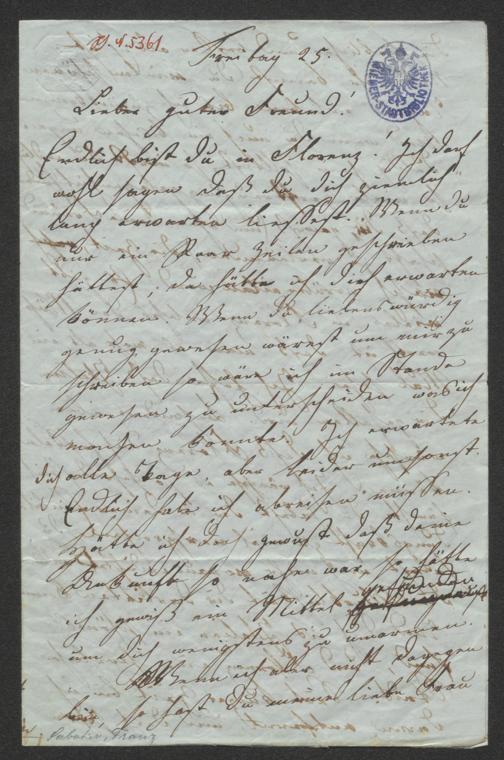 J.N. 5361
Freitag 25.
WIENER-STADTBIBLIOTHEK
Lieber guter Freund!
Endlich bist du in Florenz! Ich darf
wohl sagen daß du dich ziemlich
lang erwarten liessest. Wenn du
nur ein Paar Zeilen geschrieben
hättest, da hätte ich dich erwarten
können. Wenn du liebenswürdig
genug gewesen wärest um mir zu
schreiben so wäre ich im Stande
gewesen zu unterscheiden was ich
machen konnte. Ich erwartete
dich alle Tage, aber leider umsonst.
Endlich habe ich abreisen müssen.
Hätte ich gewust daß deine
Ankunft so nahe war, so hätte
ich gewiß ein Mittel gefunden
um dich wenigstens zu umarmen.
Wenn ich aber nicht dagegen
bin, so hast du meine liebe Frau
Sabatier, Franz